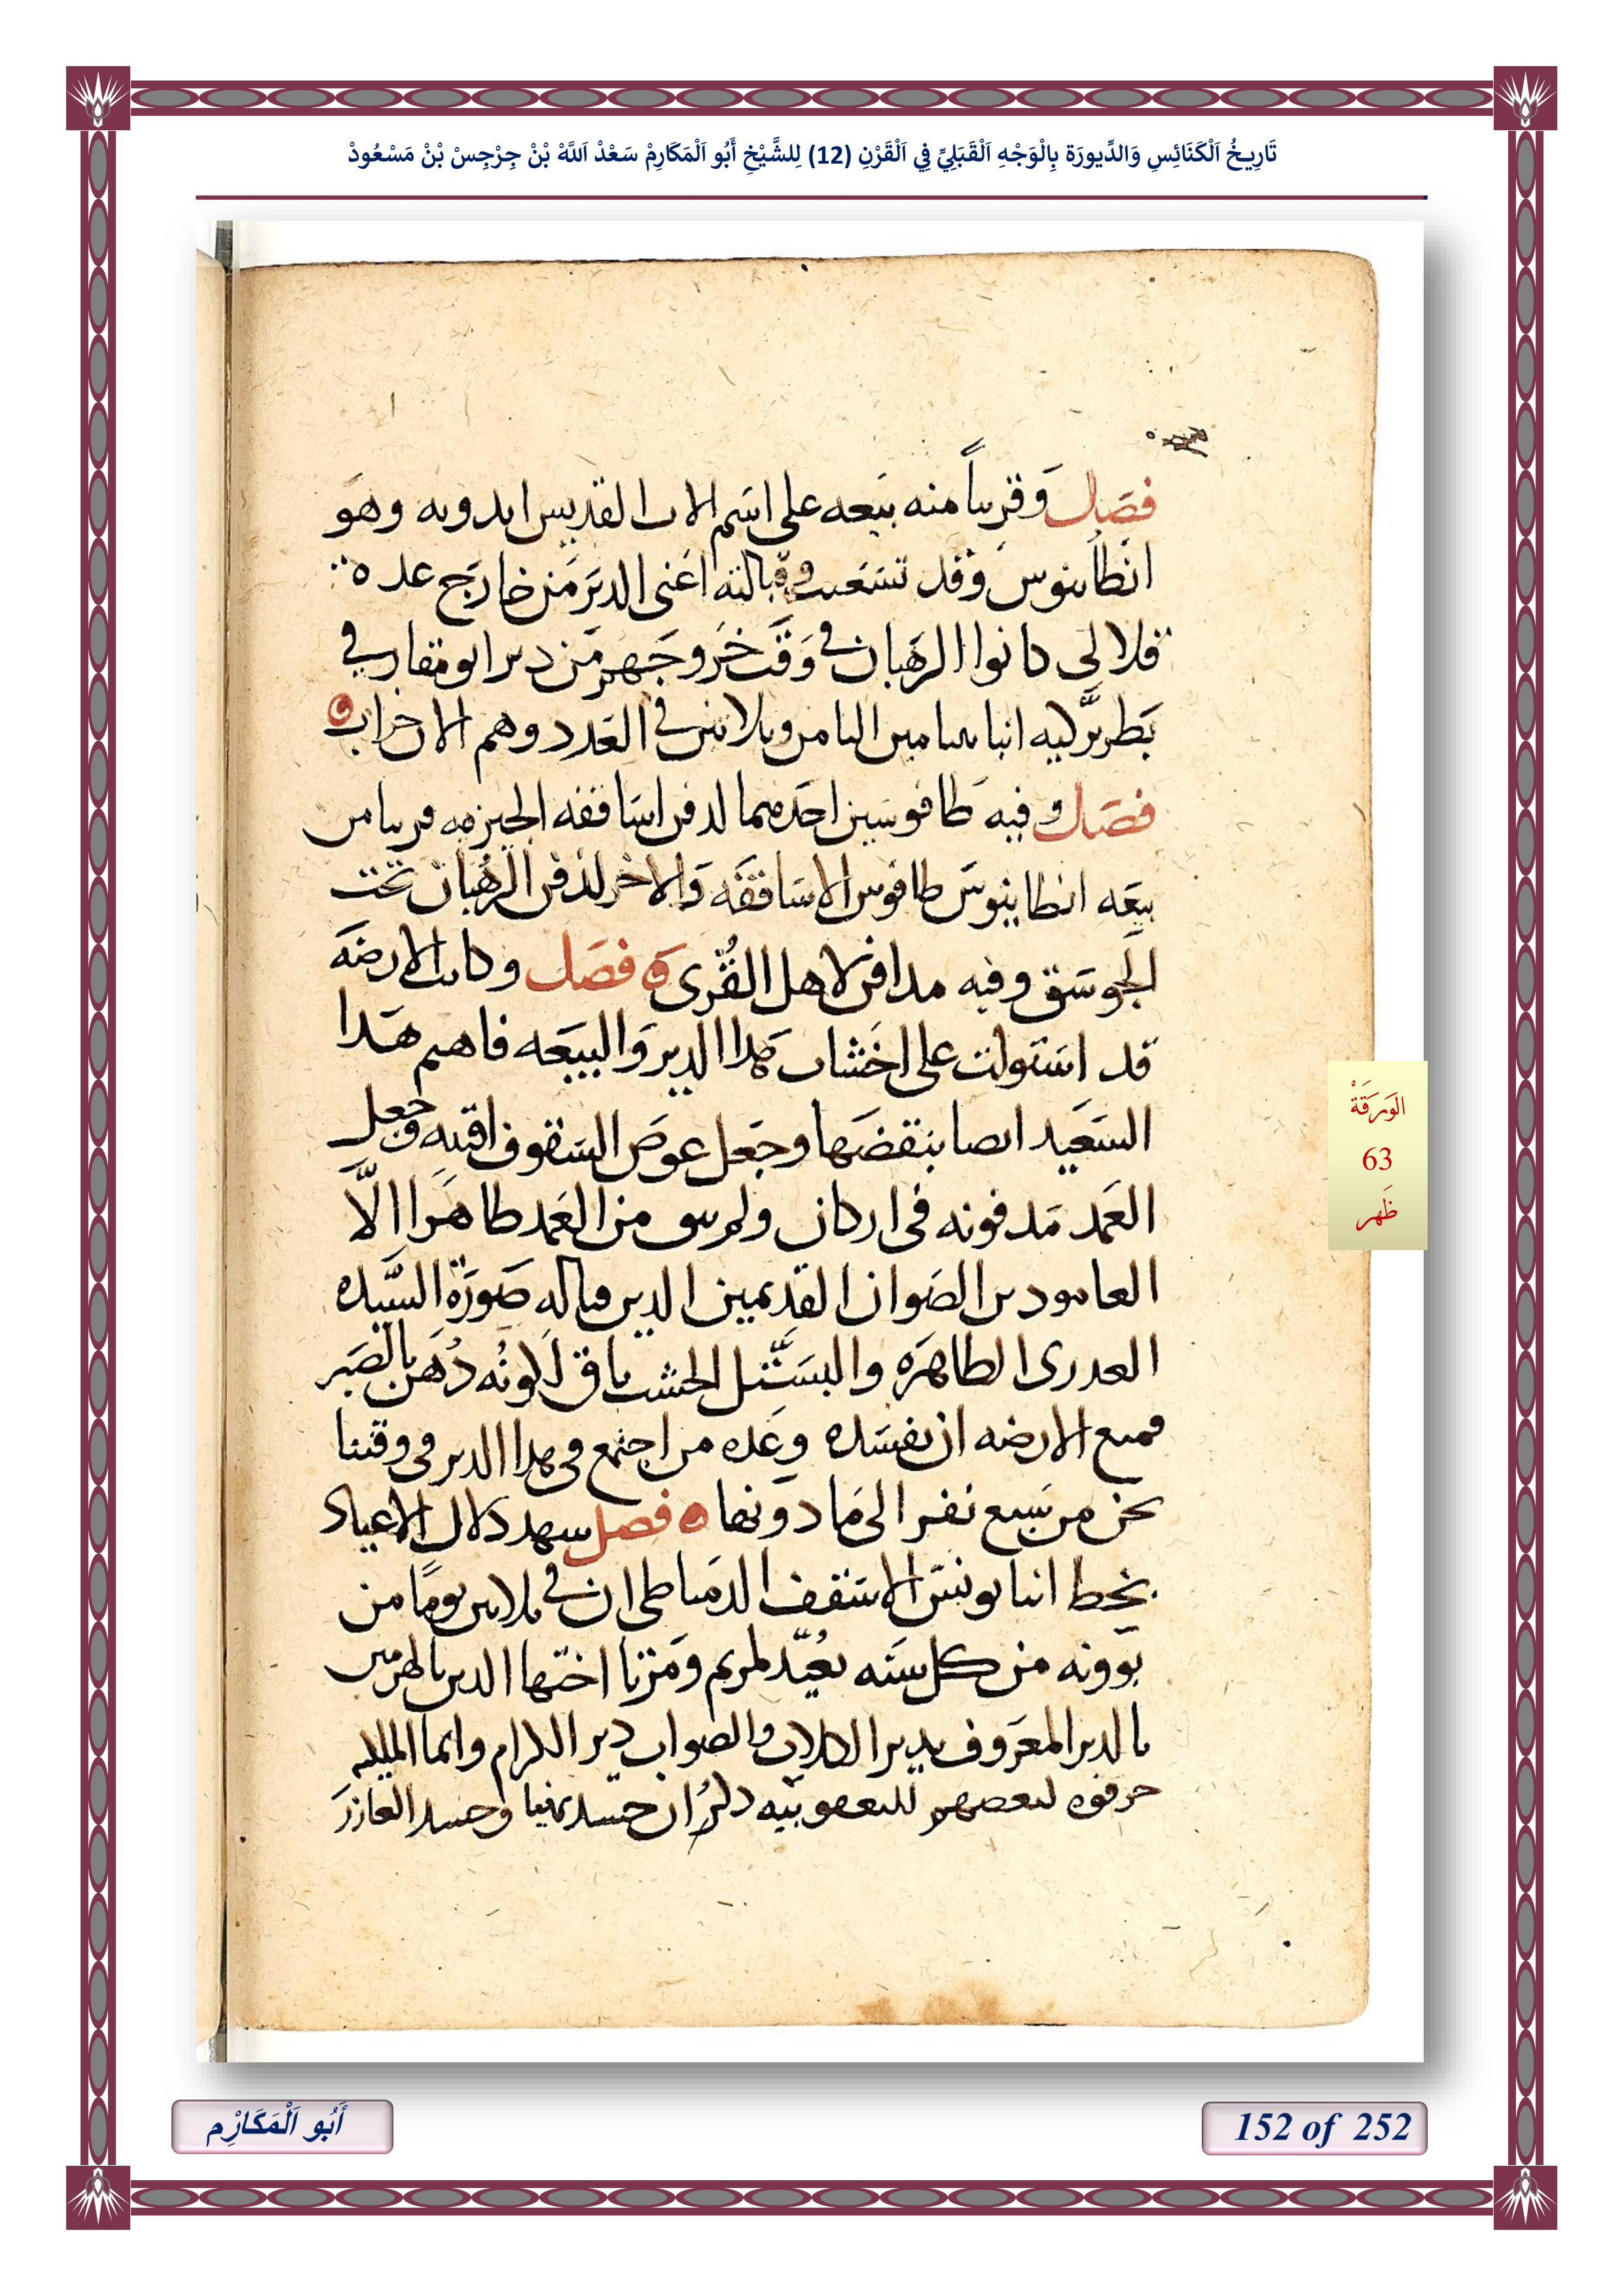 تَارِيخُ اَلْكَنَائِسِ وَالدِّيورَة بِالْوَجْهِ اَلْقَبَلِيِّ فِي اَلْقَرْنِ (12) لِلشَّيْخِ أَبُو اَلْمَكَارِمْ سَعْدْ اَللَّهْ بْنْ جِرْجِسْ بْنْ مَسْعُودْ
فصَل وَقريباً منه بيَعه على اسَم الاب القديس ابدوبه وهَو
انطانيوس وَقد تسَعَبت وقبالته اعَنى الديَر مَن خارَج عده
قلالى كانوا الرهَبان فى وَقت خَروجَهم مَن دير ابو مقار فى
بَطريركيه انبا بنيامين الثامن وثلاثين فى العَدد وهم الان خراب
فصَل وفيه طافوسين احَدهما لدفن اسَاقفه الجيزه قريبا من
بيعَه انطانيوسَ طافوس الاسَاقفَه وَالاخر لدفن الرهُبان تحت
الجَوسَق وفيه مدافن لاهل القُرى فصَل وكانت الارضَه
قد اسَتولت على اخَشاب هَدا الدير وَالبيَعَه فاهم هَدا
السَعَيد ايضا بنقضَها وجَعل عوضَ السَقوف اقبيه وجَعل
العَمد مَدفونه فى اركان ولم يبق من العَمد ظاهَرا الاَّ
العامودين الصَوان القديمين الدين قباله صَورَة السَّيده
العدرى الطاهَره والبسَتل الخشب باق لَلونُه دُهَن بالصَبر
فمنع الارضه ان تفسَده وعَده من اجتمع فى هدا الدير فى وقتنا
نحن من سَبع نفر الى مَا دَونها فصل يشهد دلال الاعياد
بخط انبا يونس الاسَقف الدمَياطى ان فى ثلاثين يومًا من
بَوونه من كل سَنَه يعُيَّد لمريم ومَرتا اختها الدين بالهرمين
بالدير المعَروف بدير الكلاب والصَواب دير الكرام وانما الملكيه
حرفوه لبعضهم لليعقوبيه دكَر ان جسد مرتا وجسد العازر
الوَرَقَةْ
63
ظَهر
أَبُو اَلْمَكَارْمِ
152 of 252